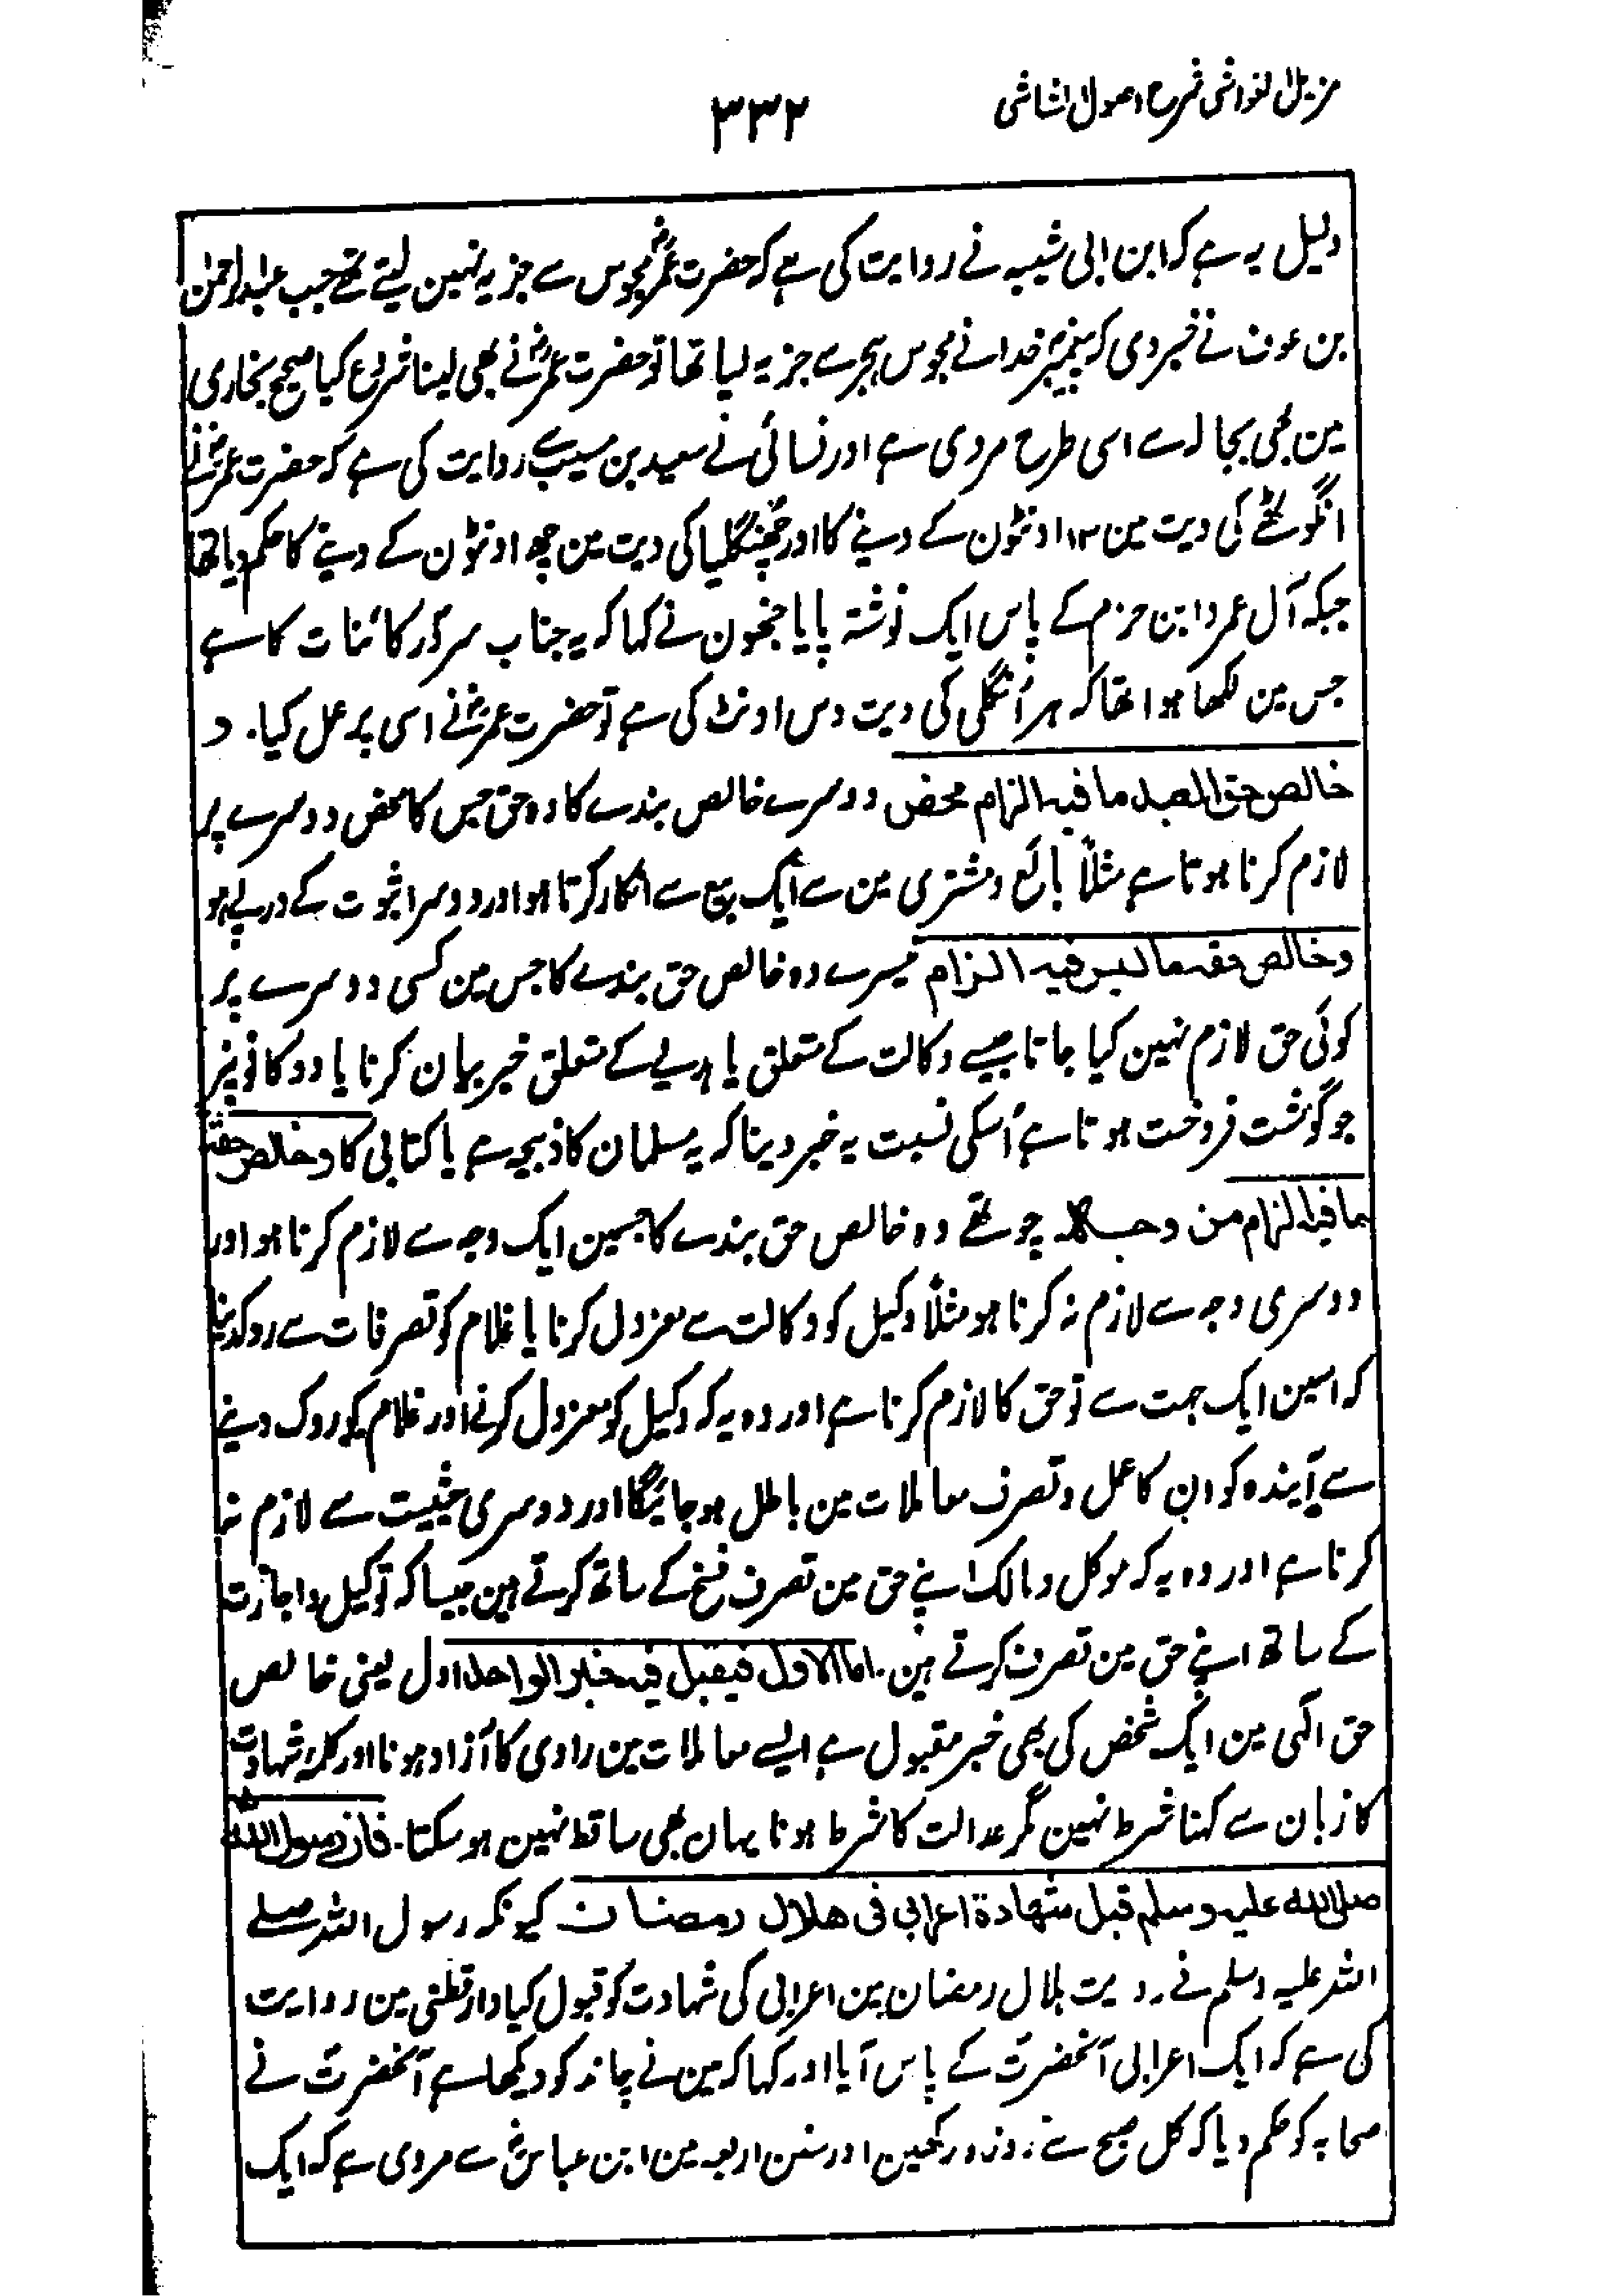 مزیل الغواشی شرح اصول الشاشی
۳۳۲
دلیل یہ ہے کہ ابن ابی شیبہ نے روایت کی ہے کہ حضرت عمرؓ مجوس سے جزیہ نہین لیتے تھے جب عبدالرحمٰن
بن عوف نے خبر دی کہ پیغمبر خدا نے مجوس ہجر سے جزیہ لیا تھا تو حضرت عمرؓ نے بھی لینا شروع کیا صحیح بخاری
مین بھی بجالہ سے اسی طرح مروی ہے اور نسائی نے سعید بن مسیب سے روایت کی ہے کہ حضرت عمرؓ نے
انگوٹھے کی دیت مین ۱۳ اونٹون کے دینے کا اور چھنگلیا کی دیت مین چھ اونٹون کے دینے کا حکم دیا تھا
جبکہ آل عمرو ابن حزم کے پاس ایک نوشتہ پایا جنھون نے کہا کہ یہ جناب سرور کائنات کا ہے
جس مین لکھا ہوا تھا کہ ہر اُنگلی کی دیت دس اونٹ کی ہے تو حضرت عمرؓ نے اسی پر عمل کیا. و
خالص حق العبد ما فیہ الزام محض دوسرے خالص بندے کا وہ حق جس کا محض دوسرے پر
لازم کرنا ہوتا ہے مثلاً بائع و مشتری مین سے ایک بیع سے انکار کرتا ہو اور دوسرا ثبوت کے درپے ہو
وخالص حقہ ما لیس فیہ الزام تیسرے وہ خالص حق بندے کا جس مین کسی دوسرے پر
کوئی حق لازم نہین کیا جاتا جیسے وکالت کے متعلق یا ہدیے کے متعلق خبر بیان کرنا یا دوکانونپر
جو گوشت فروخت ہوتا ہے اُسکی نسبت یہ خبر دینا کہ یہ مسلمان کا ذبیحہ ہے یا کتابی کا وخالص حقہ
ما فیہ الزام من وجہ چوتھے وہ خالص حق بندے کا جسمین ایک وجہ سے لازم کرنا ہو اور
دوسری وجہ سے لازم نہ کرنا ہو مثلاً وکیل کو وکالت سے معزول کرنا یا غلام کو تصرفات سے روکدینا
کہ اسمین ایک جہت سے تو حق کا لازم کرنا ہے اور وہ یہ کہ وکیل کو معزول کرنے اور غلام کو روک دینے
سے آیندہ کو ان کا عمل و تصرف معاملات مین باطل ہو جائیگا اور دوسری حیثیت سے لازم نہ
کرنا ہے اور وہ یہ کہ موکل و مالک اپنے حق مین تصرف فسخ کے ساتھ کرتے ہین جیسا کہ توکیل و اجازت
کے ساتھ اپنے حق مین تصرف کرتے ہین. اما الاول فیقبل فیہ خبر الواحد اول یعنی خالص
حق الٰہی مین ایک شخص کی بھی خبر مقبول ہے ایسے معاملات مین راوی کا آزاد ہونا اور کلمۂ شہادت
کا زبان سے کہنا شرط نہین مگر عدالت کا شرط ہونا یہان بھی ساقط نہین ہو سکتا. فان رسول اللہ
صلی اللہ علیہ وسلم قبل شہادة اعرابی فی ھلال رمضان کیونکہ رسول اللہ صلے
اللہ علیہ وسلم نے رویت ہلال رمضان مین اعرابی کی شہادت کو قبول کیا دارقطنی مین روایت
کی ہے کہ ایک اعرابی آنحضرتؐ کے پاس آیا اور کہا کہ مین نے چاند کو دیکھا ہے آنحضرتؐ نے
صحابہ کو حکم دیا کہ کل صبح سے روزہ رکھین اور سنن اربعہ مین ابن عباسؓ سے مروی ہے کہ ایک